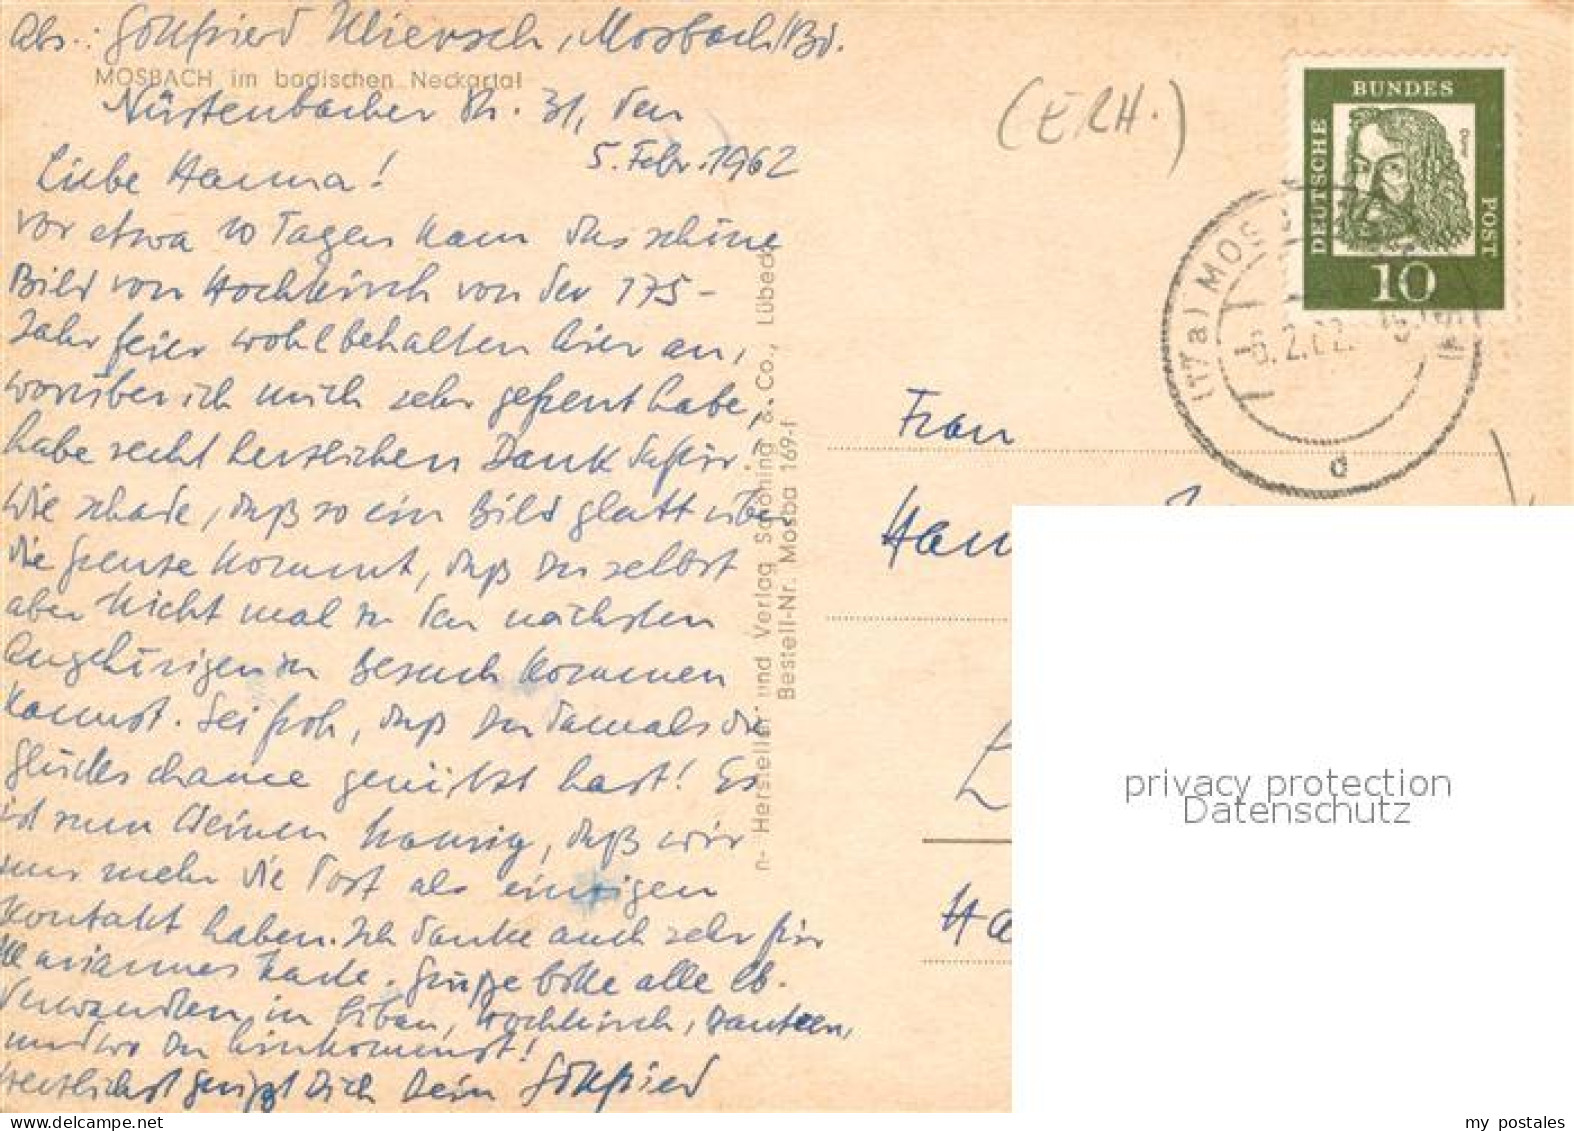 Abs.: Gottfried Kliersch, Mosbach/Bd.
MOSBACH im badischen Neckartal
Nüstenbacher Str. 31, den
5. Febr. 1962
(ERH.)
Liebe Hanna!
vor etwa 10 Tagen kam das schöne
Bild von Hochkirch von der 175-
Jahrfeier wohlbehalten hier an,
worüber ich mich sehr gefreut habe,
habe recht herzlichen Dank dafür.
Wie schade, daß so ein Bild glatt über
die Grenze kommt, daß Du selbst
aber nicht mal zu den nächsten
Angehörigen zu Besuch kommen
kannst. Sei froh, daß Du damals die
Glückschance genützt hast! Es
ist zum Weinen traurig, daß wir
nur mehr die Post als einzigen
Kontakt haben. Ich danke auch sehr für
Mariannes Karte. Grüße bitte alle lb.
Verwandten in Löbau, Hochkirch, Bautzen,
und wo Du hinkommst!
Herzlichst grüßt Dich Dein Gottfried
n- Hersteller und Verlag Schöning & Co., Lübeck
Bestell-Nr. Mosba 169-f
DEUTSCHE
BUNDES
POST
Dürer
10
(17a) MOS
6.2.62.
d
Frau
Han
Ha
privacy protection
Datenschutz
my postales